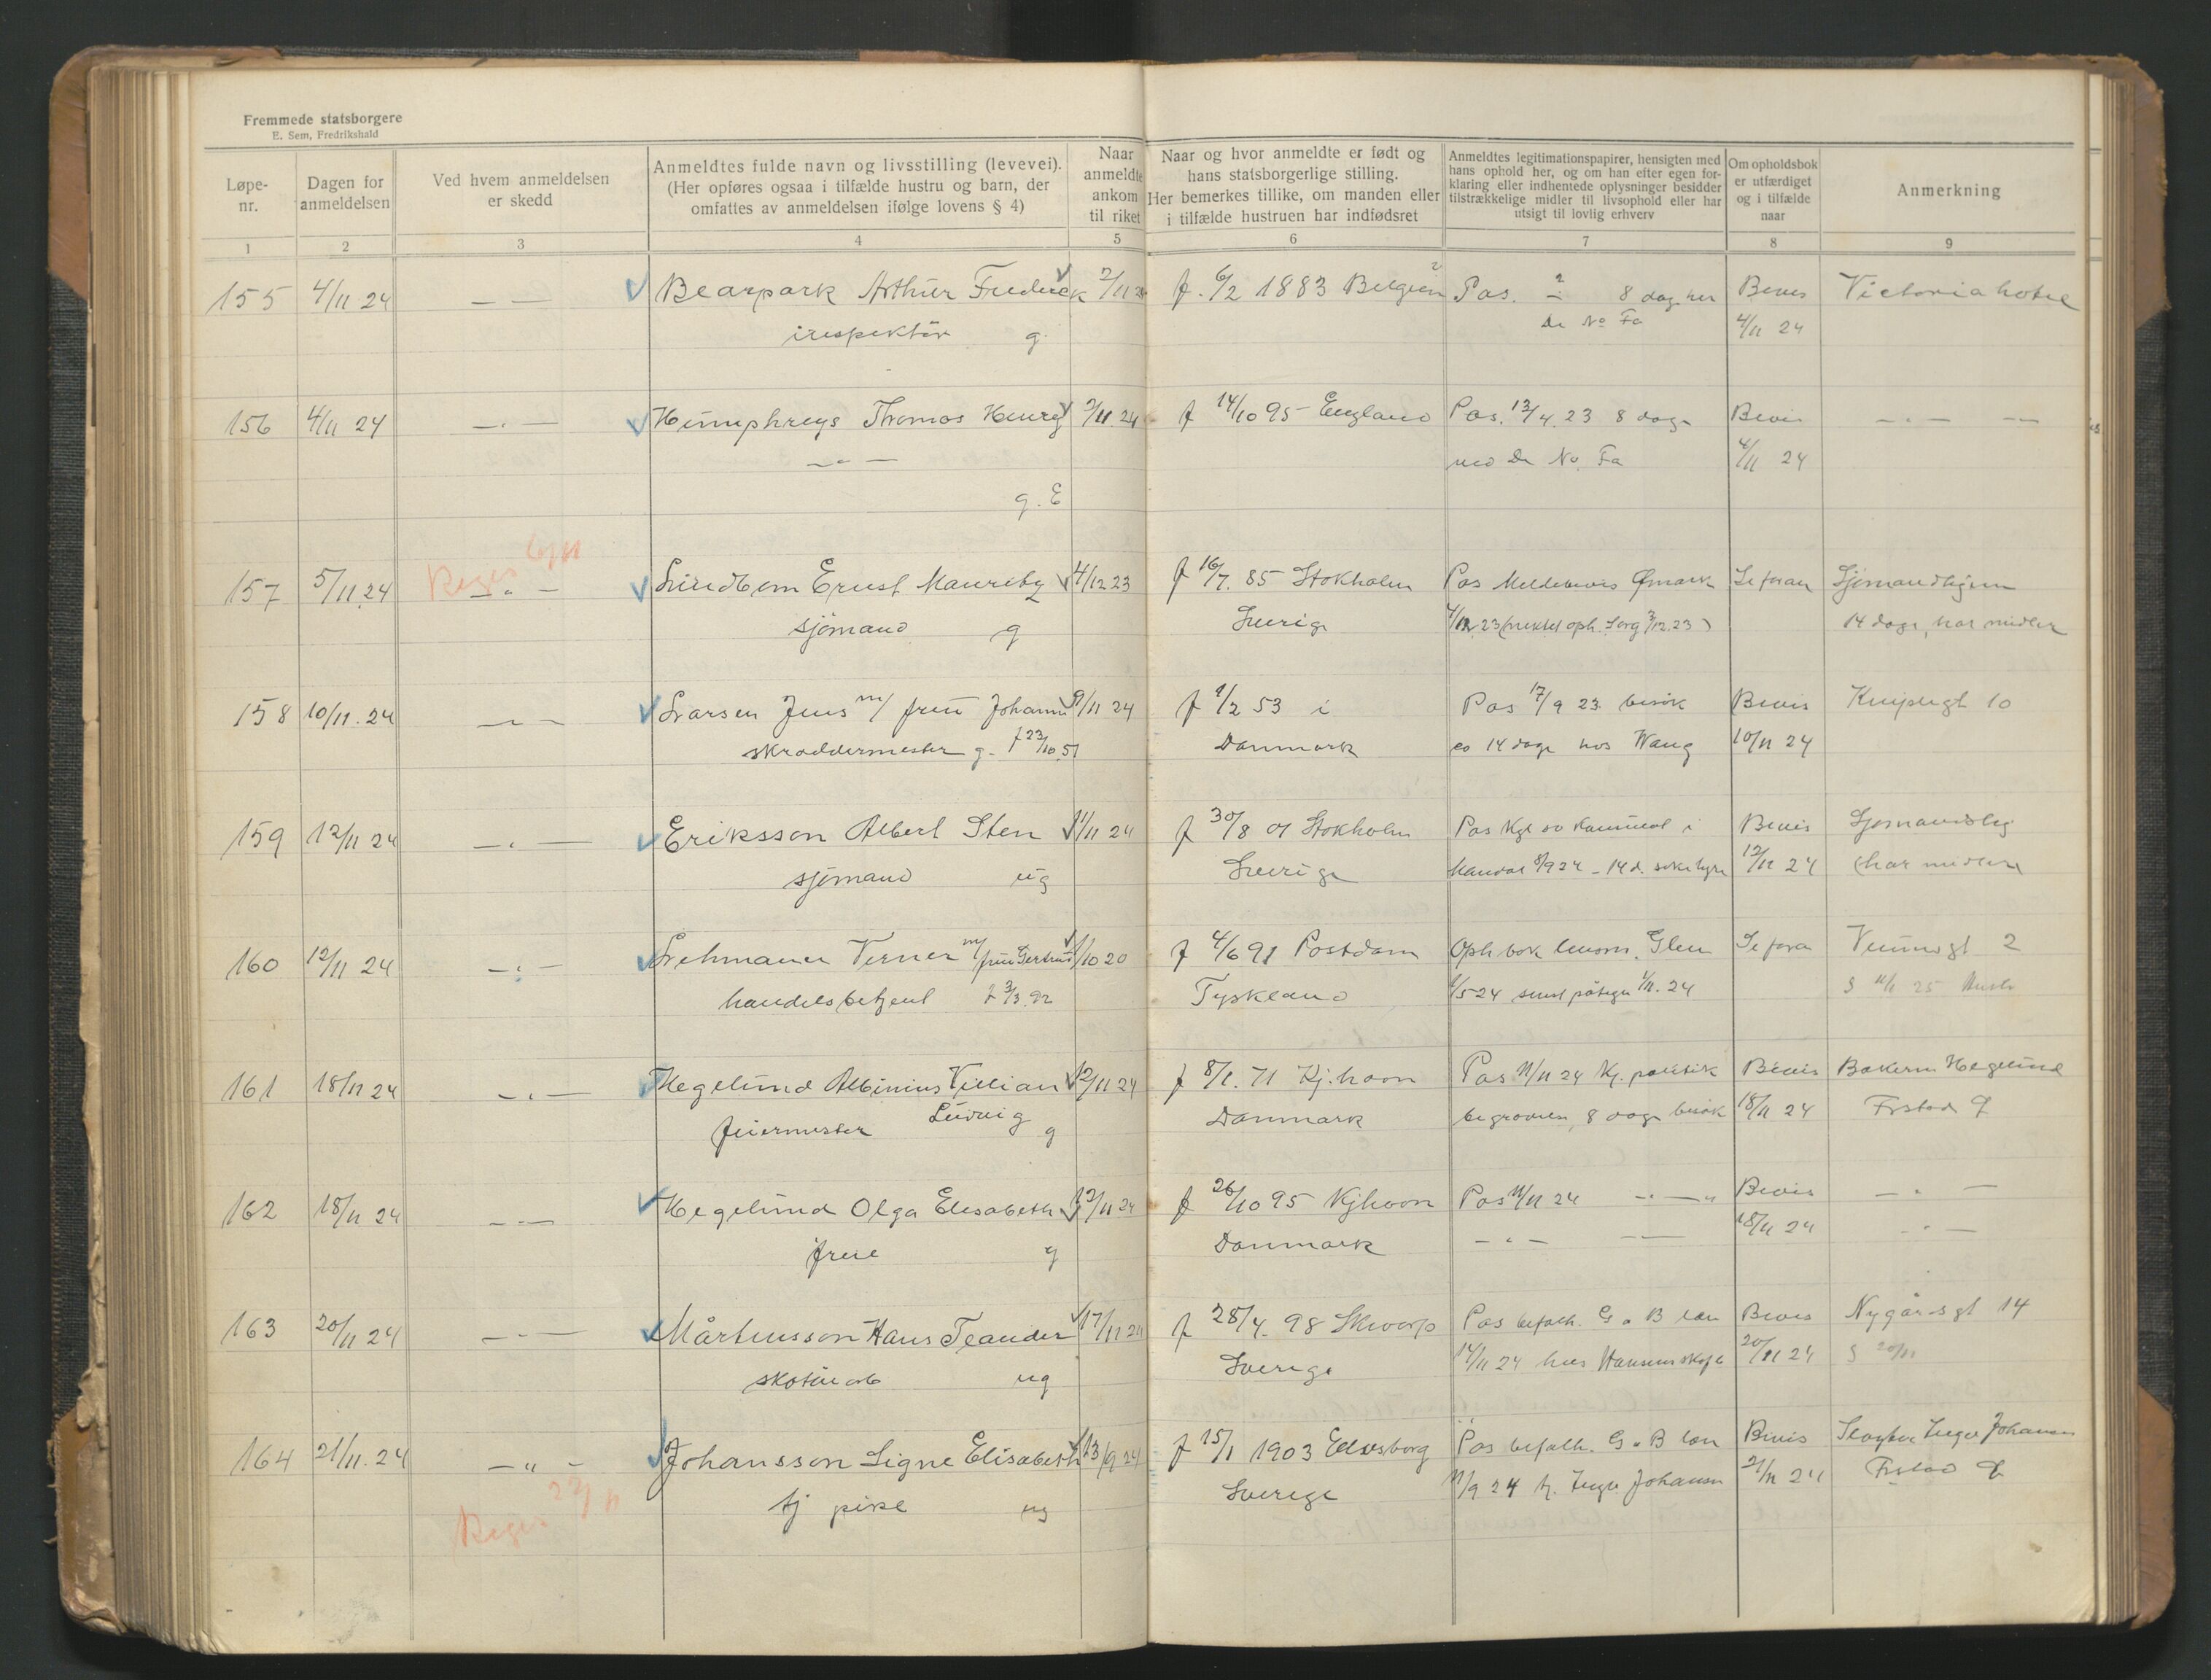 Fremmede statsborgere
E. Sem, Fredrikshald
Løpe-nr.
Dagen for anmeldelsen
Ved hvem anmeldelsen er skedd
Anmeldtes fulde navn og livsstilling (levevei).
(Her opføres ogsaa i tilfælde hustru og barn, der
omfattes av anmeldelsen ifølge lovens § 4)
Naar anmeldte ankom til riket
Naar og hvor anmeldte er født og
hans statsborgerlige stilling.
Her bemerkes tillike, om manden eller
i tilfælde hustruen har indfødsret
Anmeldtes legitimationspapirer, hensigten med
hans ophold her, og om han efter egen for-
klaring eller indhentede oplysninger besidder
tilstrækkelige midler til livsophold eller har
utsigt til lovlig erhverv
Om opholdsbok
er utfærdiget
og i tilfælde
naar
Anmerkning
1 2 3 4 5 6 7 8 9
155 4/11 24 — — Bearpark Arthur Frederick 2/11 24 f. 6/2 1883 Belgien ? Pas. ? 8 dag her Bevis Victoria hotel
inspektör g. De No Fa 4/11 24
156 4/11 24 — " — Humphreys Thomas Henry 2/11 24 f 14/10 95 England Pas. 13/4 23 8 dage Bevis — " — —
— " — ved De No. Fa 4/11 24
g. E
6/11
157 5/11 24 Reges — " — Lindbom Ernst Mauritz 4/12 23 f 16/7. 85 Stokholm Pas Meldebevis Ømark Se foran Sjömandhjem
sjömand g Sverige 4/12 23 (nektet oph. Sarg 3/12.23) 14 dage, har midler
158 10/11. 24 — " — Larsen Jens m/ frue Johanne 9/11 24 f 1/2 53 i Pas 17/9 23 besök Bevis Knipelgt 10
skræddermester g. f 23/10.51 Danmark ca 14 dage hos Wang 10/11 24
159 12/11 24 — " — Eriksson Albert Sten 11/11 24 f 30/8 01 Stokholm Pas Kgl sv Konsulat i Bevis Sjømandshj
sjömand ug Sverige Mandal 8/9 24 - 14 d. söke hyre 12/11 24 (har midler)
160 12/11 24 — " — Lehmann Verner m/ frue Gertrud 1/10 20 f 4/6 91 Postdam Oph bok lensm. Glem Se foran 2
handelsbetjent f 3/3. 92 Tyskland 1/5 24 senest påtegn 1/11. 24 S 11/1 25
161 18/11 24 — " — Hegelund Albinius Villian 12/11 24 f 8/1. 71 Kj.havn Pas 11/11 24 Kj. politik Bevis Bakerm Hegelund
Ludvig
feiermester g Danmark begravelse, 8 dage besök 18/11 24 Frstad Ø
162 18/11 24 — " — Hegelund Olga Elisabeth 12/11 24 f 26/10 95 Kjhavn Pas 11/11 24 — " — " Bevis — " —
frue g Danmark — " — — 18/11 24 — " —
163 20/11 24 — " — Mårtensson Hans Teander 17/11 24 f 28/4. 98 Skvarp Pas befalh. G o B län Bevis Nygårdsgt 14
skotöiarb ug Sverige 14/11 24 hos Hansens skofb 20/11 24 S 20/11
164 21/11. 24 — " — Johansson Signe Elisabeth 13/9 24 f 15/1 1903 Elvsborg Pas befalh. G o B län Bevis Inger Johansen
tj pike ug Sverige 11/9 24 tj. Inger Johansen 21/11 24 Frstad Ø
Reges 22/11